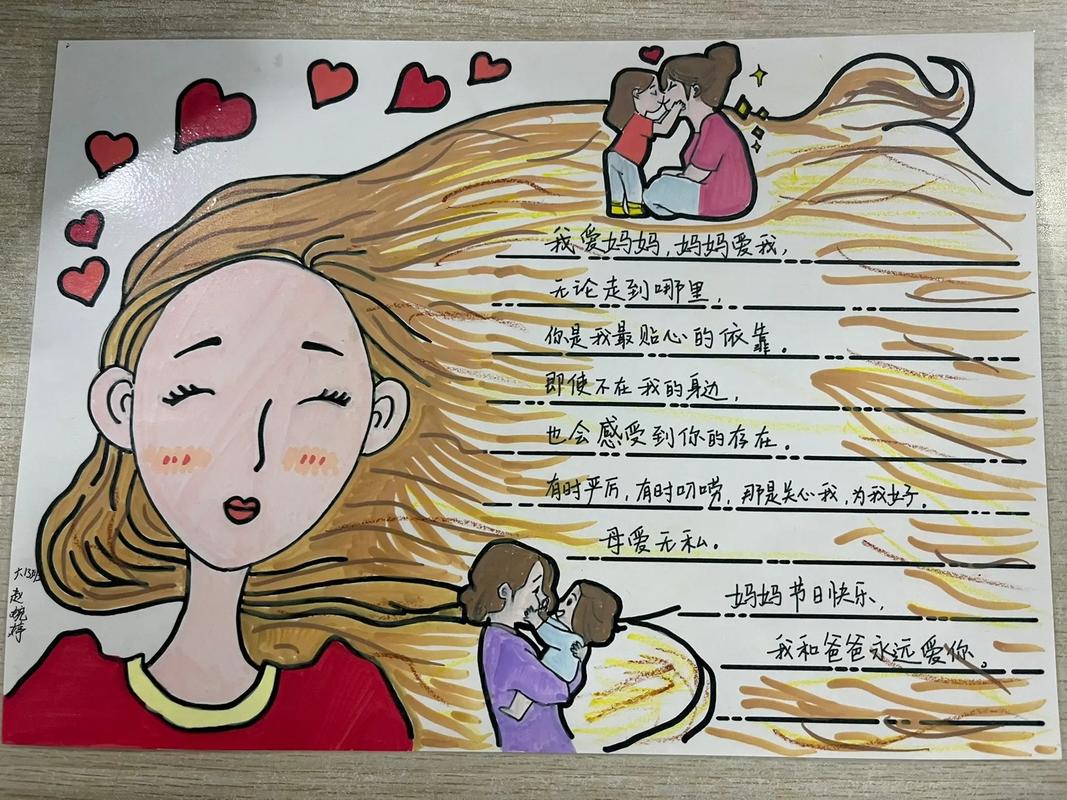 我爱妈妈，妈妈爱我，
无论走到哪里，
你是我最贴心的依靠。
即使不在我的身边，
也会感受到你的存在。
有时严厉，有时叨唠，那是关心我，为我好。
母爱无私。
妈妈节日快乐，
我和爸爸永远爱你。
六.13班
赵婉婷